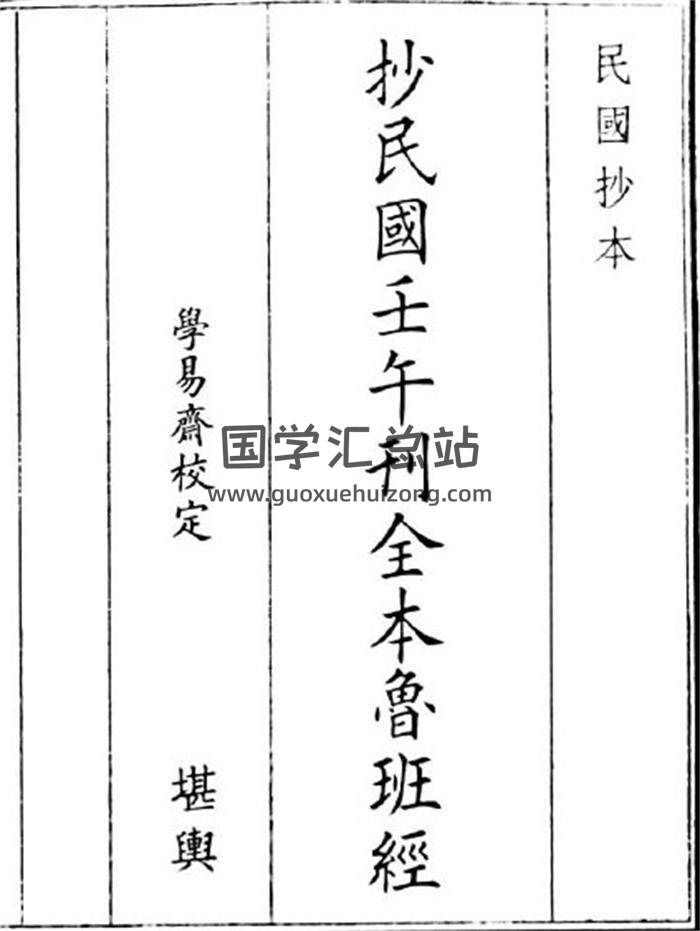 民國抄本
抄民國壬午刊全本魯班經
學易齋校定
堪輿
国学汇总站
www.guoxuehuizong.com